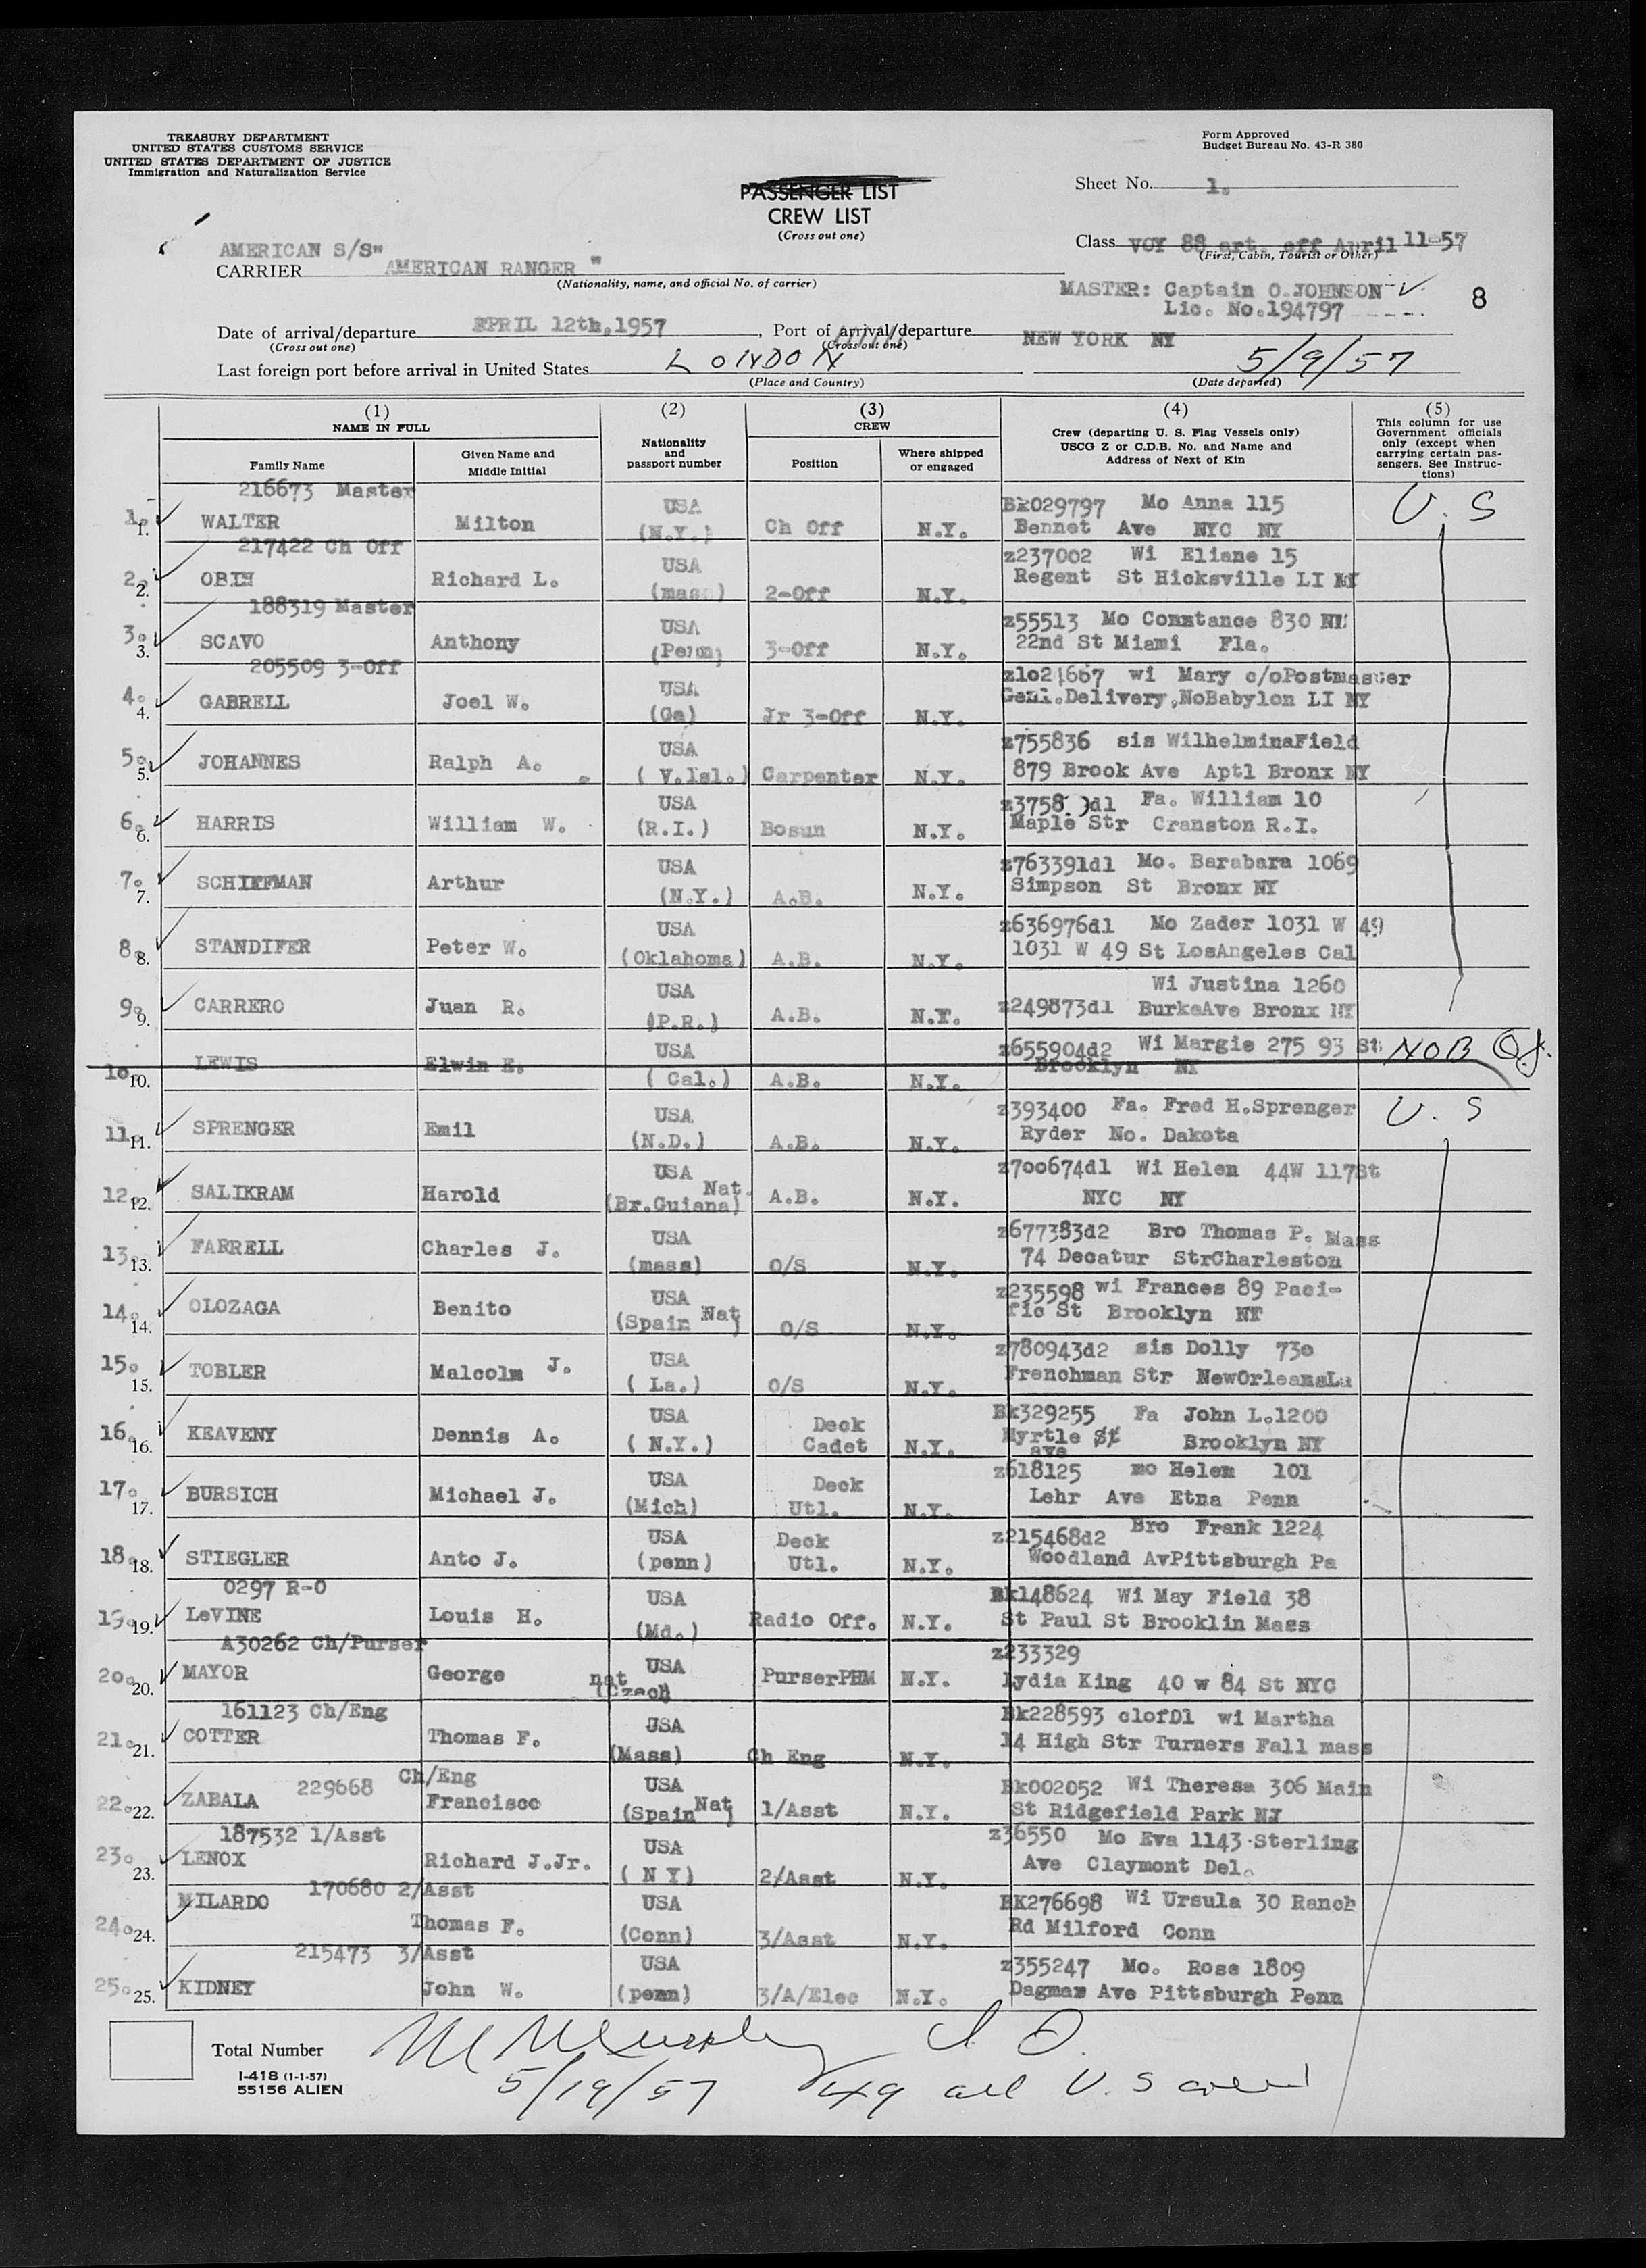 TREASURY DEPARTMENT
UNITED STATES CUSTOMS SERVICE
UNITED STATES DEPARTMENT OF JUSTICE
Immigration and Naturalization Service
Form Approved
Budget Bureau No. 43-R 380
PASSENGER LIST
CREW LIST
(Cross out one)
Sheet No. 1.
Class VOY 88 art. off April 11-57
(First, Cabin, Tourist or Other)
AMERICAN S/S"
CARRIER AMERICAN RANGER "
(Nationality, name, and official No. of carrier)
MASTER: Captain O.JOHNSON
Lic. No.194797
8
Date of arrival/departure APRIL 12th,1957, Port of arrival/departure NEW YORK NY
(Cross out one) (Cross out one)
Last foreign port before arrival in United States LONDON 5/9/57
(Place and Country) (Date departed)
(1) NAME IN FULL
Family Name
Given Name and Middle Initial
(2)
Nationality and passport number
(3) CREW
Position
Where shipped or engaged
(4)
Crew (departing U. S. Flag Vessels only)
USCG Z or C.D.B. No. and Name and
Address of Next of Kin
(5)
This column for use
Government officials
only (except when
carrying certain pas-
sengers. See Instruc-
tions)
216673 Master
1. 1. WALTER Milton USA (N.Y.) Ch Off N.Y. Bk029797 Mo Anna 115 Bennet Ave NYC NY U.S
217422 Ch Off
2. 2. Richard L. USA (mass) 2-Off N.Y. z237002 Wi Eliane 15 Regent St Hicksville LI NY
188319 Master
3. 3. SCAVO Anthony USA (Penn) 3-Off N.Y. z55513 Mo Conmtance 830 NW 22nd St Miami Fla.
205509 3-Off
4. 4. GABRELL Joel W. USA (Ga) Jr 3-Off N.Y. wi Mary c/oPostmaster Genl.Delivery,NoBabylon LI NY
5. 5. JOHANNES Ralph A. USA ( V.Isl.) Carpenter N.Y. z755836 sis WilhelminaField 879 Brook Ave Apt1 Bronx NY
6. 6. HARRIS William W. USA (R.I.) Bosun N.Y. Fa. William 10 Maple Str Cranston R.I.
7. 7. SCHIFFMAN Arthur USA (N.Y.) A.B. N.Y. z763391d1 Mo. Barabara 1069 Simpson St Bronx NY
8. 8. STANDIFER Peter W. USA (Oklahoma) A.B. N.Y. z636976d1 Mo Zader 1031 W 49 1031 W 49 St LosAngeles Cal
9. 9. CARRERO Juan R. USA (P.R.) A.B. N.Y. z249873d1 Wi Justina 1260 BurkeAve Bronx NY
10. 10. LEWIS Elwin E. USA ( Cal.) A.B. N.Y. z655904d2 Wi Margie 275 93 St Brooklyn NY NOB
11. 11. SPRENGER Emil USA (N.D.) A.B. N.Y. z393400 Fa. Fred H.Sprenger Ryder No. Dakota U.S
12. 12. SALIKRAM Harold USA Nat. (Br.Guiana) A.B. N.Y. z700674d1 Wi Helen 44W 117St NYC NY
13. 13. FARRELL Charles J. USA (mass) O/S N.Y. z677383d2 Bro Thomas P. Mass 74 Decatur StrCharleston
14. 14. OLOZAGA Benito USA (Spain Nat) O/S N.Y. z235598 wi Frances 89 Paci- fic St Brooklyn NY
15. 15. TOBLER Malcolm J. USA ( La.) O/S N.Y. z780943d2 sis Dolly 730 Frenchman Str NewOrleansLa
16. 16. KEAVENY Dennis A. USA ( N.Y.) Deck Cadet N.Y. Bk329255 Fa John L.1200 Myrtle St ave Brooklyn NY
17. 17. BURSICH Michael J. USA (Mich) Deck Utl. N.Y. z618125 mo Helem 101 Lehr Ave Etna Penn
18. 18. STIEGLER Anto J. USA (penn) Deck Utl. N.Y. z215468d2 Bro Frank 1224 Woodland AvPittsburgh Pa
0297 R-O
19. 19. LeVINE Louis H. USA (Md.) Radio Off. N.Y. Bk148624 Wi May Field 38 St Paul St Brooklin Mass
A30262 Ch/Purser
20. 20. MAYOR George nat USA (Czech) PurserPHM N.Y. z233329 Lydia King 40 w 84 St NYC
161123 Ch/Eng
21. 21. COTTER Thomas F. USA (Mass) Ch Eng N.Y. Bk228593 clofD1 wi Martha 14 High Str Turners Fall mass
229668 Ch/Eng
22. 22. ZABALA Francisco USA (Spain Nat) 1/Asst N.Y. Bk002052 Wi Theresa 306 Main St Ridgefield Park NJ
187532 1/Asst
23. 23. LENOX Richard J.Jr. USA ( N Y) 2/Asst N.Y. z36550 Mo Eva 1143 Sterling Ave Claymont Del.
170680 2/Asst
24. 24. MILARDO Thomas F. USA (Conn) 3/Asst N.Y. BK276698 Wi Ursula 30 Ranch Rd Milford Conn
215473 3/Asst
25. 25. KIDNEY John W. USA (penn) 3/A/Elec N.Y. z355247 Mo. Rose 1809 Dagmar Ave Pittsburgh Penn
Total Number
I-418 (1-1-57)
55156 ALIEN
5/19/57 49 all U.S